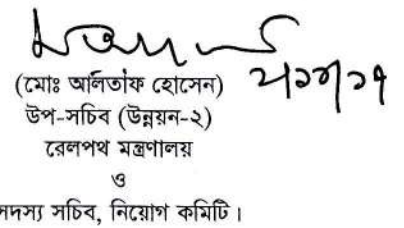 (মোঃ আলতাফ হোসেন)
উপ-সচিব (উন্নয়ন-২)
রেলপথ মন্ত্রণালয়
ও
সদস্য সচিব, নিয়োগ কমিটি।